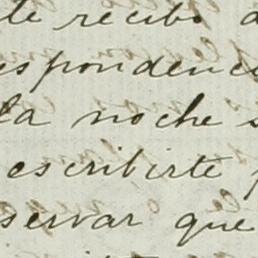 te recibo
spondenci
la noche s
escribirte
servar que